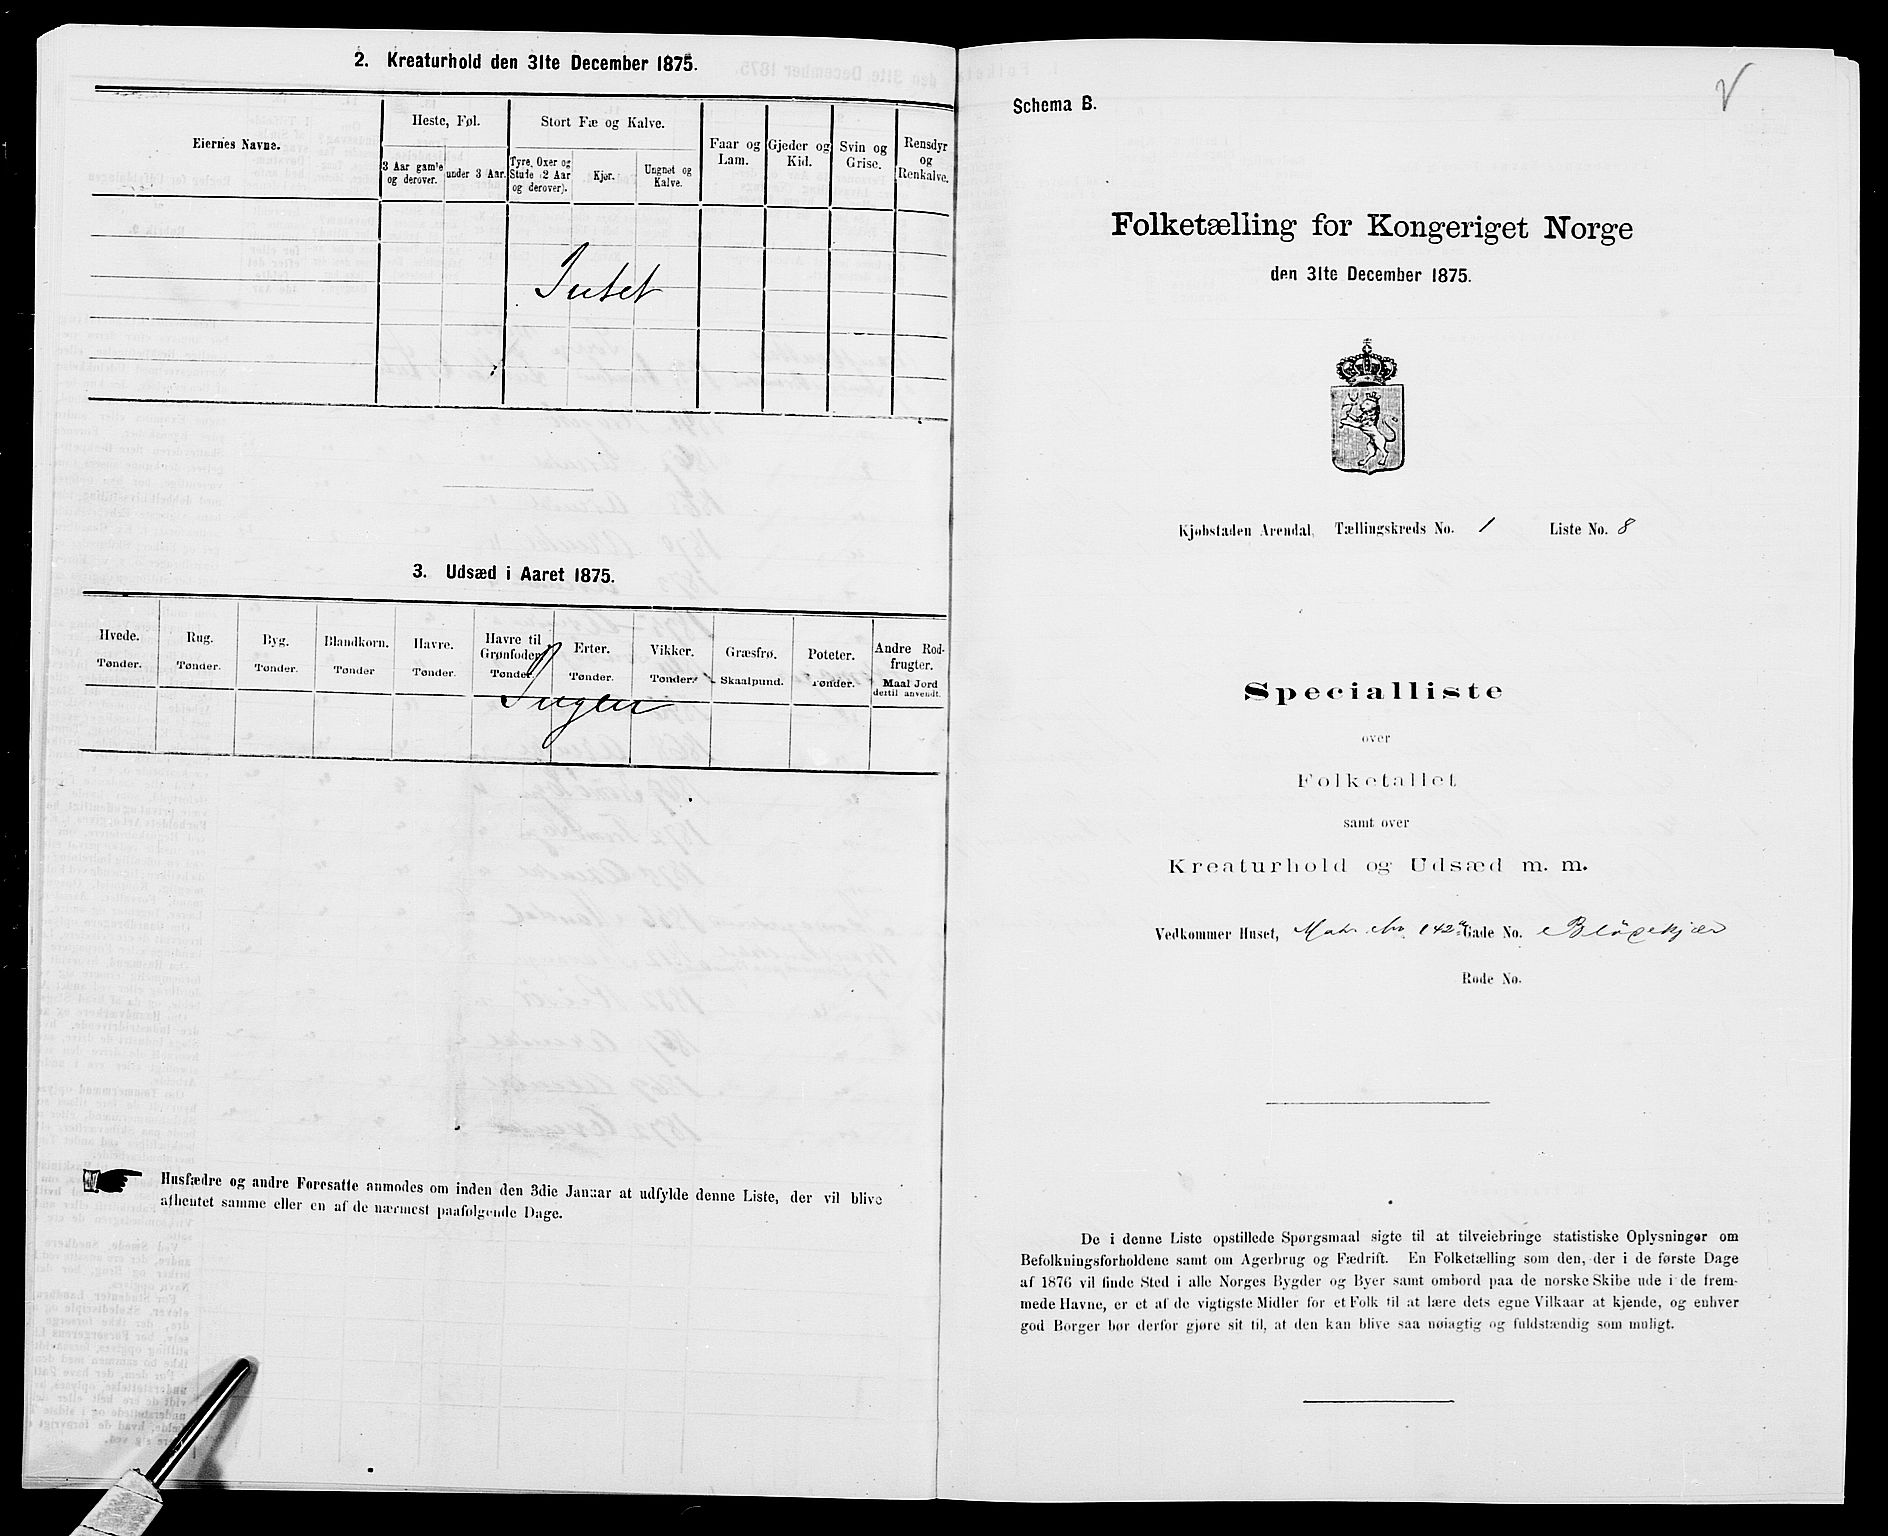 2. Kreaturhold den 31te December 1875.
Eiernes Navne.
Heste, Føl.
Stort Fæ og Kalve.
Faar og Lam.
Gjeder og Kid.
Svin og Grise.
Rensdyr og Renkalve.
3 Aar gamle og derover.
under 3 Aar.
Tyre, Oxer og Stude (2 Aar og derover).
Kjør.
Ungnøt og Kalve.
Intet
3. Udsæd i Aaret 1875.
Hvede. Tønder.
Rug. Tønder.
Byg. Tønder.
Blandkorn. Tønder
Havre. Tønder.
Havre til Grønfoder. Tønder.
Erter. Tønder.
Vikker. Tønder.
Græsfrø. Skaalpund.
Poteter. Tønder.
Andre Rodfrugter. Maal Jord dertil anvendt.
Ingen
Husfædre og andre Foresatte anmodes om inden den 3die Januar at udfylde denne Liste, der vil blive
afhentet samme eller en af de nærmest paafølgende Dage.
Schema B.
Folketælling for Kongeriget Norge
den 31te December 1875.
Kjøbstaden Arendal, Tællingskreds No. 1 Liste No. 8
Specialliste
over
Folketallet
samt over
Kreaturhold og Udsæd m. m.
Vedkommer Huset, Matr. No. 142a Gade No. Blødekjær
Rode No.
De i denne Liste opstillede Spørgsmaal sigte til at tilveiebringe statistiske Oplysninger om
Befolkningsforholdene samt om Agerbrug og Fædrift. En Folketælling som den, der i de første Dage
af 1876 vil finde Sted i alle Norges Bygder og Byer samt ombord paa de norske Skibe ude i de frem-
mede Havne, er et af de vigtigste Midler for et Folk til at lære dets egne Vilkaar at kjende, og enhver
god Borger bør derfor gjøre sit til, at den kan blive saa nøiagtig og fuldstændig som muligt.